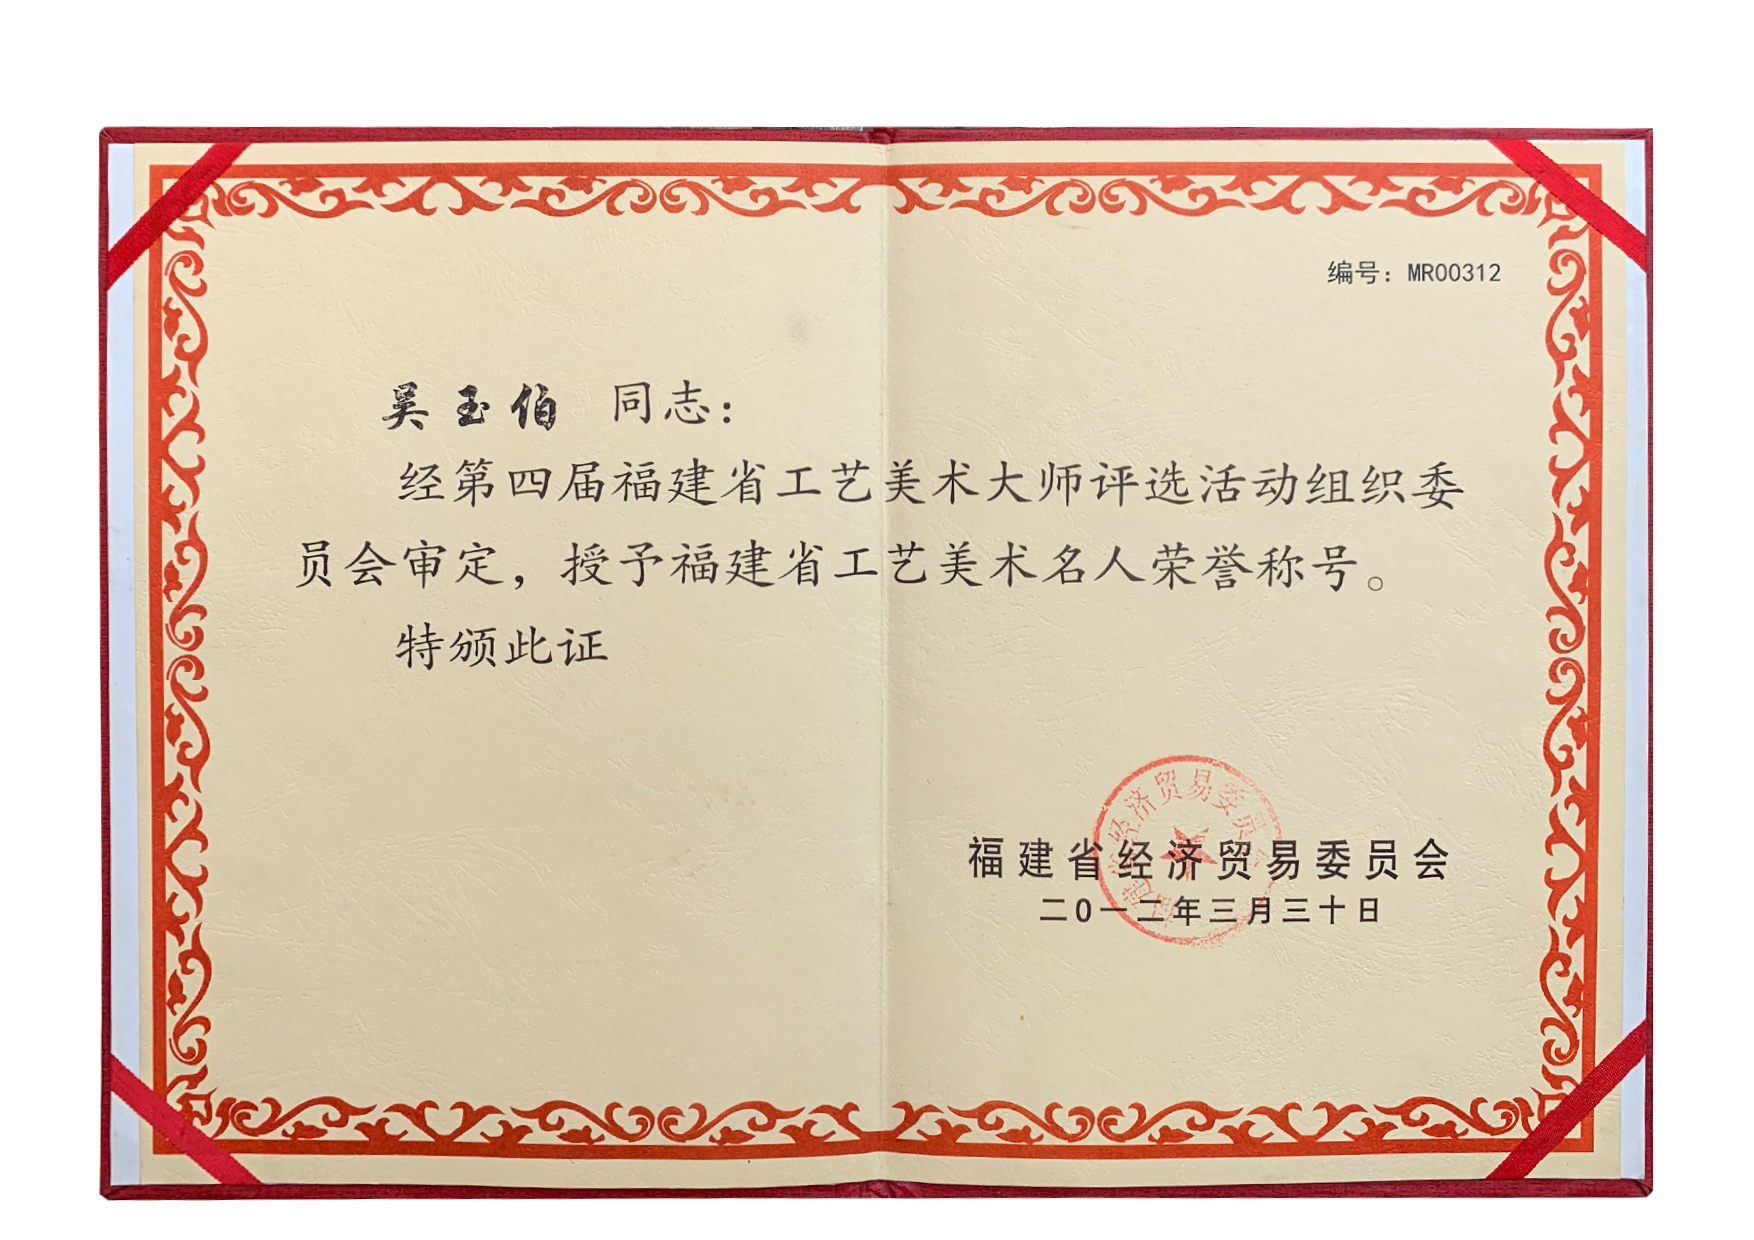 编号：MR00312
吴玉伯 同志：
经第四届福建省工艺美术大师评选活动组织委
员会审定，授予福建省工艺美术名人荣誉称号。
特颁此证
福建省经济贸易委员会
福建省经济贸易委员会
二0一二年三月三十日